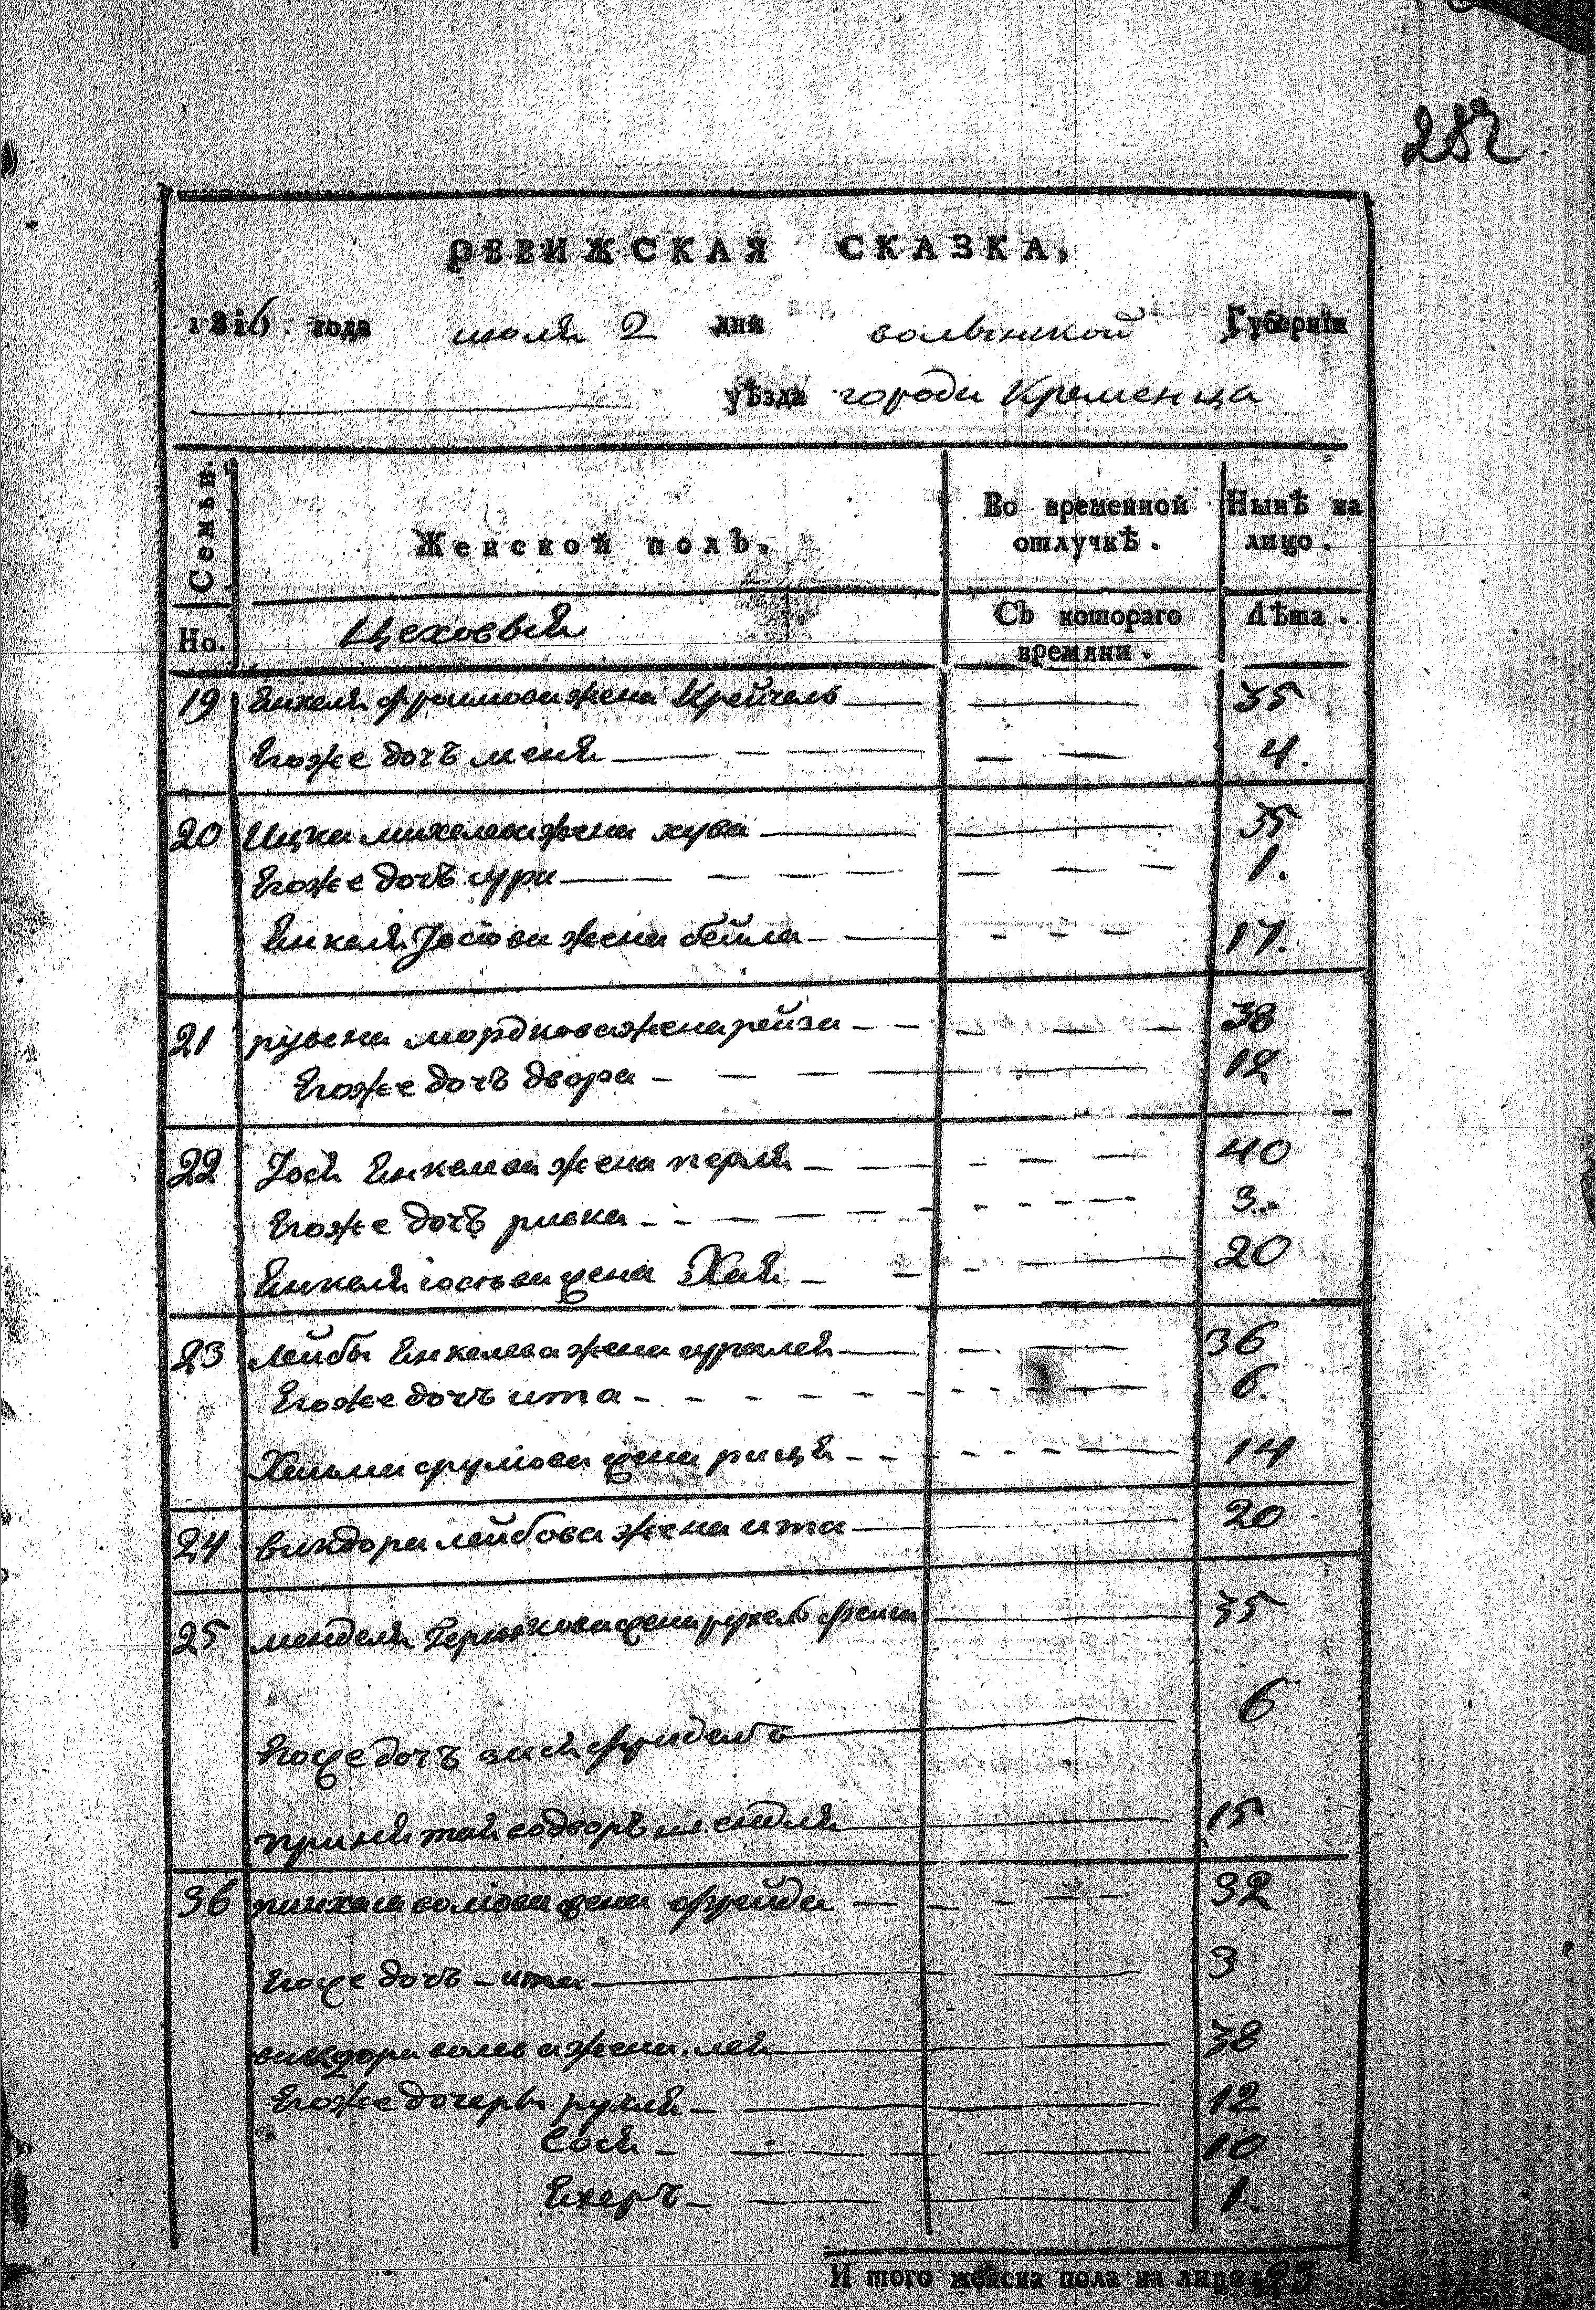 282.
РЕВИЖСКАЯ СКАЗКА,
1816. года июля 2 дня волынской Губерніи
уѣзда города Кременца
Семьи.
Женской полъ.
Во временной отлучкѣ.
Нынѣ на лицо.
Но.
Цеховыя
Съ котораго времяни.
Лѣта.
19 Енкеля фроимова жена Крейчель 35
Егоже дочъ меня 4.
20 Ицка михелева жена хува 35
Егоже дочъ сура 1.
Енкеля Јосiова жена бейла 17.
21 рувена мордкова жена рейза 38
Егоже дочъ двора 12
22 Јося Енкелева жена перля 40
Егоже дочъ ривка 3.
Енкеля iосьва жена Хая 20
23 лейбы Енкелева жена сурялея 36
Егоже дочъ ита 6.
Хаима срулiова жена рися 14
24 викдора лейбова жена ита 20
25 менделя жена рухель фейга 35
Егоже дочъ зися фридель 6
принятая содворъ 15
36 пинхаса волiова жена фрейда 32
Егоже дочъ ита 3
викдора волева жена лея 38
Егоже дочеры рухля 12
Сося 10
Ехеръ 1.
И того женска пола на лицо 23